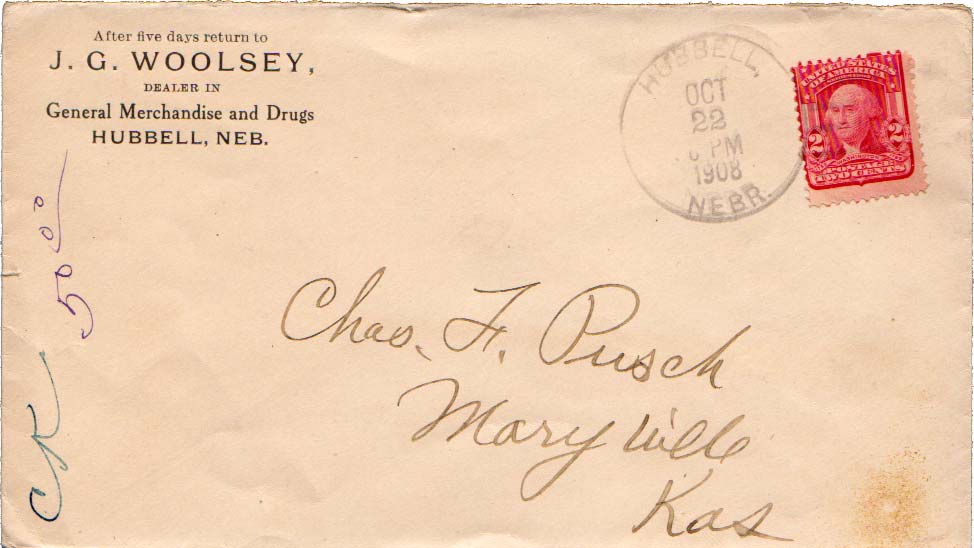 After five days return to
J. G. WOOLSEY,
DEALER IN
General Merchandise and Drugs
HUBBELL, NEB.
HUBBELL,
OCT
22
PM
1908
NEBR.
UNITED STATES
OF AMERICA
2 2
WASHINGTON
POSTAGE
TWO CENTS
Chas. F. Pusch
Maryville
Kas
CK 5000